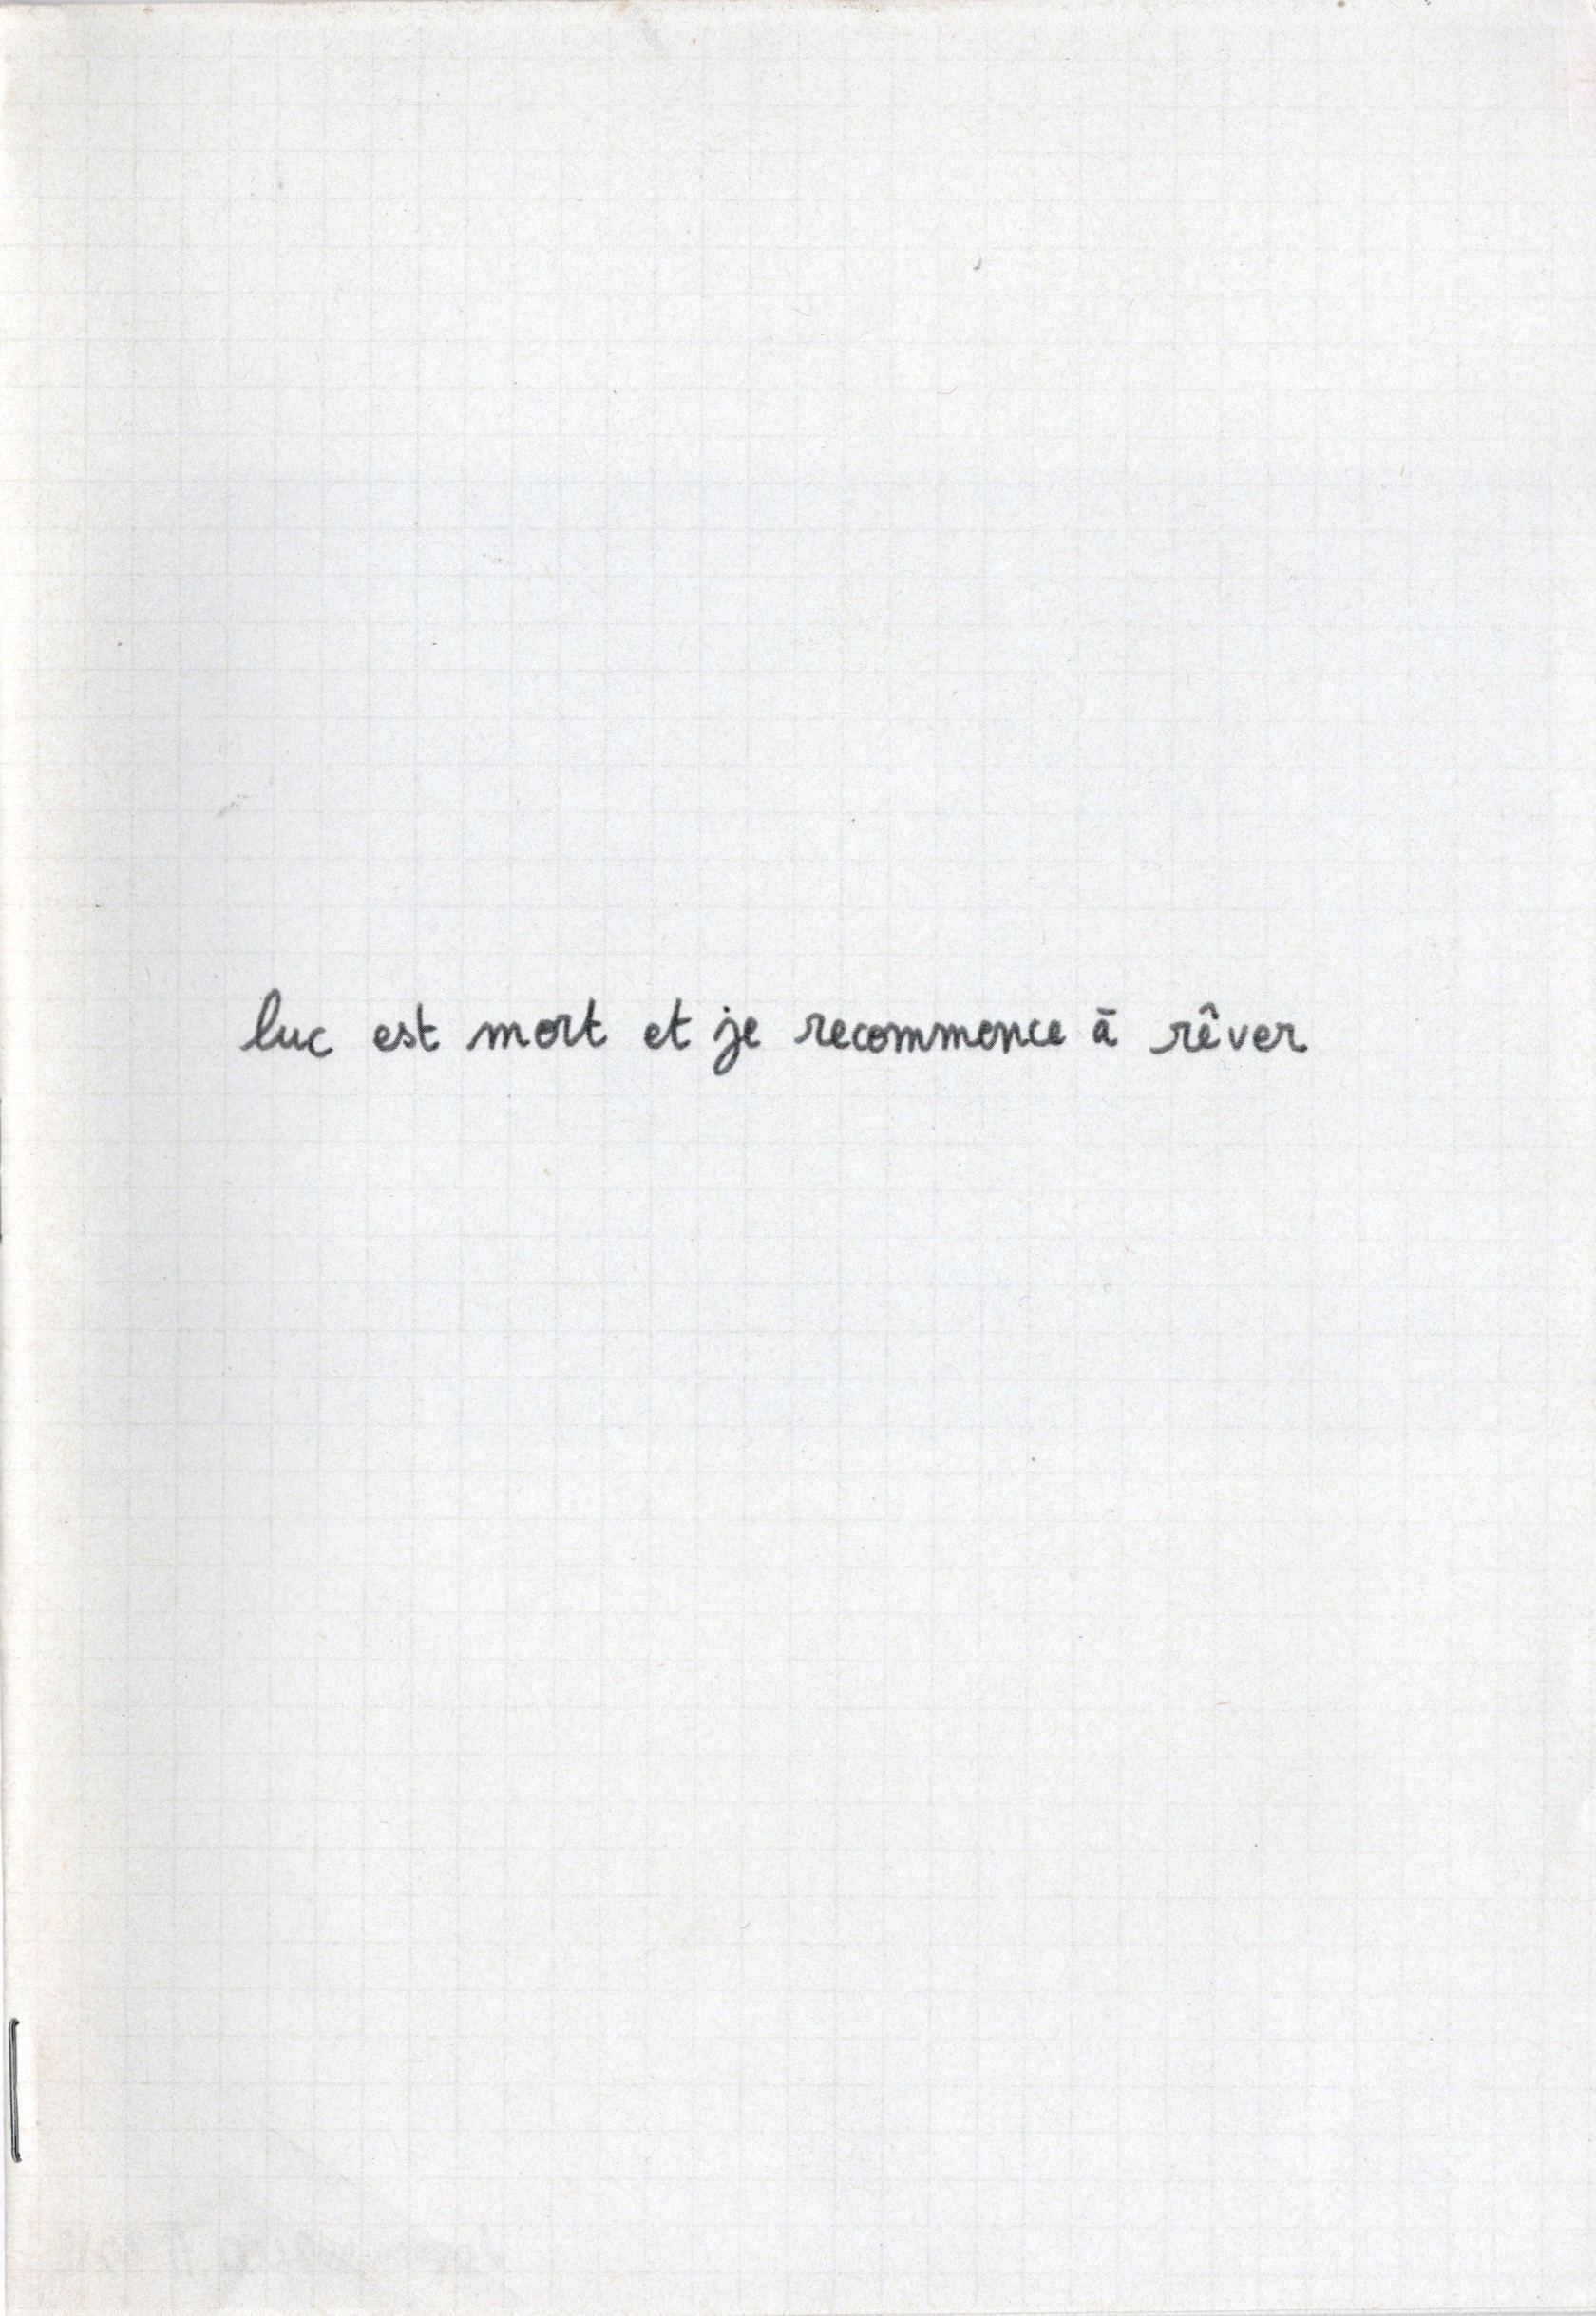 luc est mort et je recommence à rêver